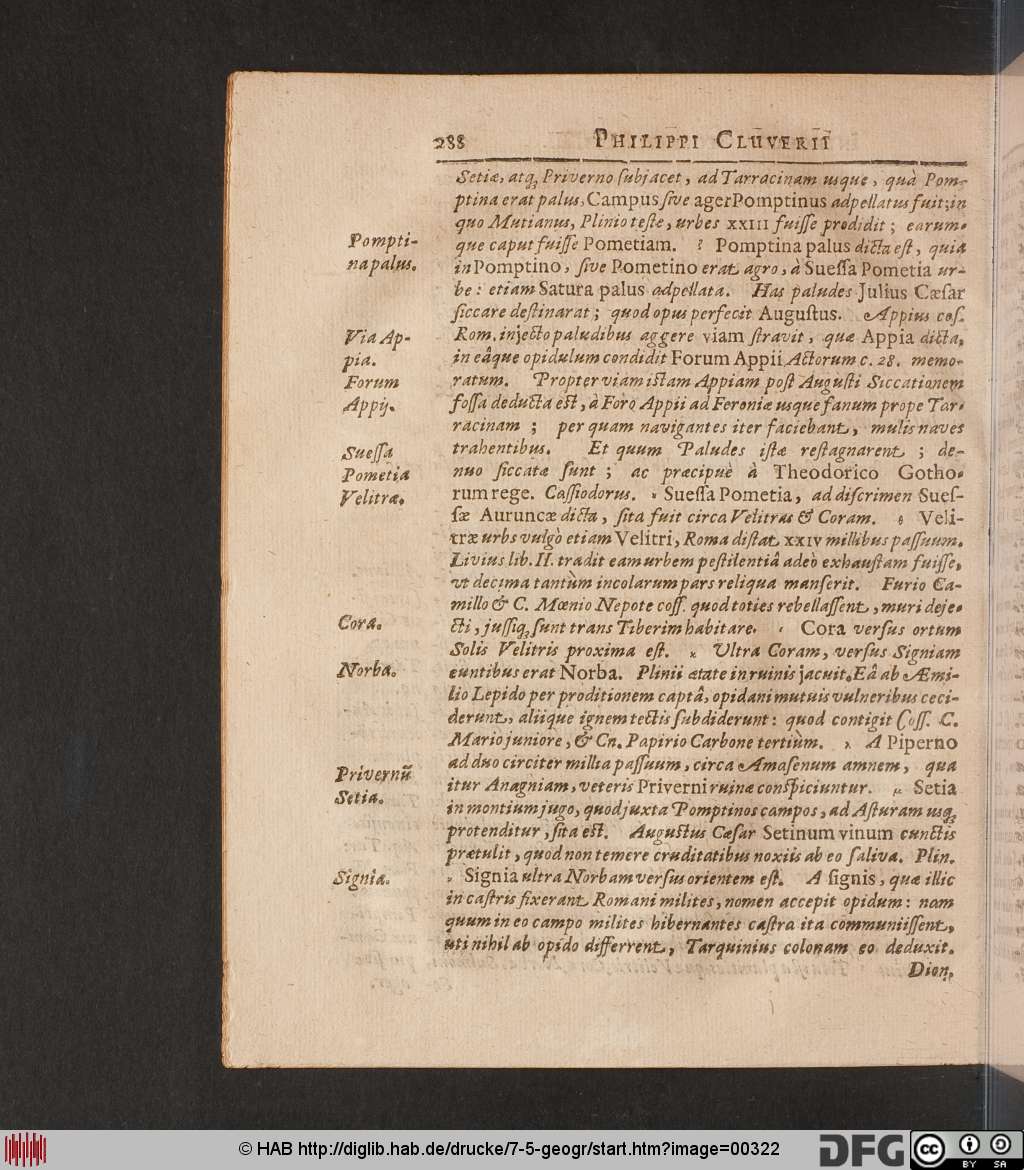 288 PHILIPPI CLUVERII
Setiæ, atq; Priverno subjacet, ad Tarracinam usque, quà Pom-
ptina erat palus, Campus sive ager Pomptinus adpellatus fuit; in
quo Mutianus, Plinio teste, urbes XXIII fuisse prodidit; earum-
que caput fuisse Pometiam. ? Pomptina palus dicta est, quia
Pompti-
na palus.
in Pomptino, sive Pometino erat agro, à Suessa Pometia ur-
be: etiam Satura palus adpellata. Has paludes Julius Cæsar
siccare destinarat; quod opus perfecit Augustus. Appius cos.
Rom. injecto paludibus aggere viam stravit, quæ Appia dicta,
Via Ap-
pia.
in eâque opidulum condidit Forum Appii Actorum c. 28. memo-
ratum. Propter viam istam Appiam post Augusti Siccationem
Forum
Appij.
fossa deducta est, à Foro Appii ad Feroniæ usque fanum prope Tar-
racinam ; per quam navigantes iter faciebant, mulis naves
trahentibus. Et quum Paludes istæ restagnarent ; de-
Suessa
Pometia
nuo siccatæ sunt ; ac præcipuè à Theodorico Gotho-
rum rege. Cassiodorus. Suessa Pometia, ad discrimen Sues-
Velitræ.
sæ Auruncæ dicta, sita fuit circa Velitras & Coram. Veli-
træ urbs vulgò etiam Velitri, Roma distat XXIV millibus passuum.
Livius lib. II. tradit eam urbem pestilentiâ adeò exhaustam fuisse,
vt decima tantùm incolarum pars reliqua manserit. Furio Ca-
millo & C. Mœnio Nepote coss. quod toties rebellassent, muri deje-
Cora.
cti, jussiq; sunt trans Tiberim habitare. Cora versus ortum
Solis Velitris proxima est. Ultra Coram, versus Signiam
Norba.
euntibus erat Norba. Plinii ætate in ruinis jacuit. Eâ ab Æmi-
lio Lepido per proditionem captâ, opidani mutuis vulneribus ceci-
derunt, aliique ignem tectis subdiderunt: quod contigit Coss. C.
Mario juniore, & Cn. Papirio Carbone tertiùm. A Piperno
ad duo circiter millia passuum, circa Amasenum amnem, qua
Privernũ
itur Anagniam, veteris Priverni ruinæ conspiciuntur. Setia
Setia.
in montium jugo, quod juxta Pomptinos campos, ad Asturam usq;
protenditur, sita est. Augustus Cæsar Setinum vinum cunctis
prætulit, quod non temere cruditatibus noxiis ab eo saliva. Plin.
Signia.
Signia ultra Norbam versus orientem est. A signis, quæ illic
in castris fixerant Romani milites, nomen accepit opidum: nam
quum in eo campo milites hibernantes castra ita communiissent,
uti nihil ab opido differrent, Tarquinius colonam eo deduxit.
Dion.
© HAB http://diglib.hab.de/drucke/7-5-geogr/start.htm?image=00322
DFG cc BY SA